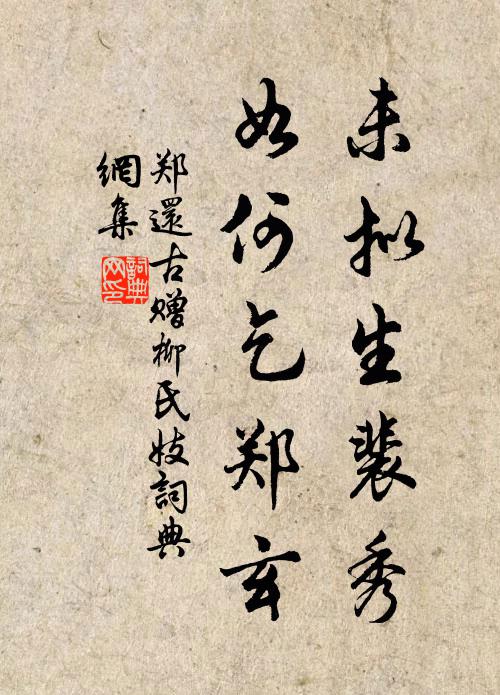 未拟生裴秀
如何乞郑玄
郑還古赠柳氏妓詞典
網集
詞典
网印